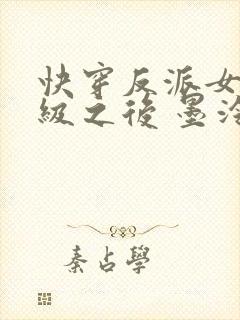 快穿反派女
級之後 墨泠
秦占學